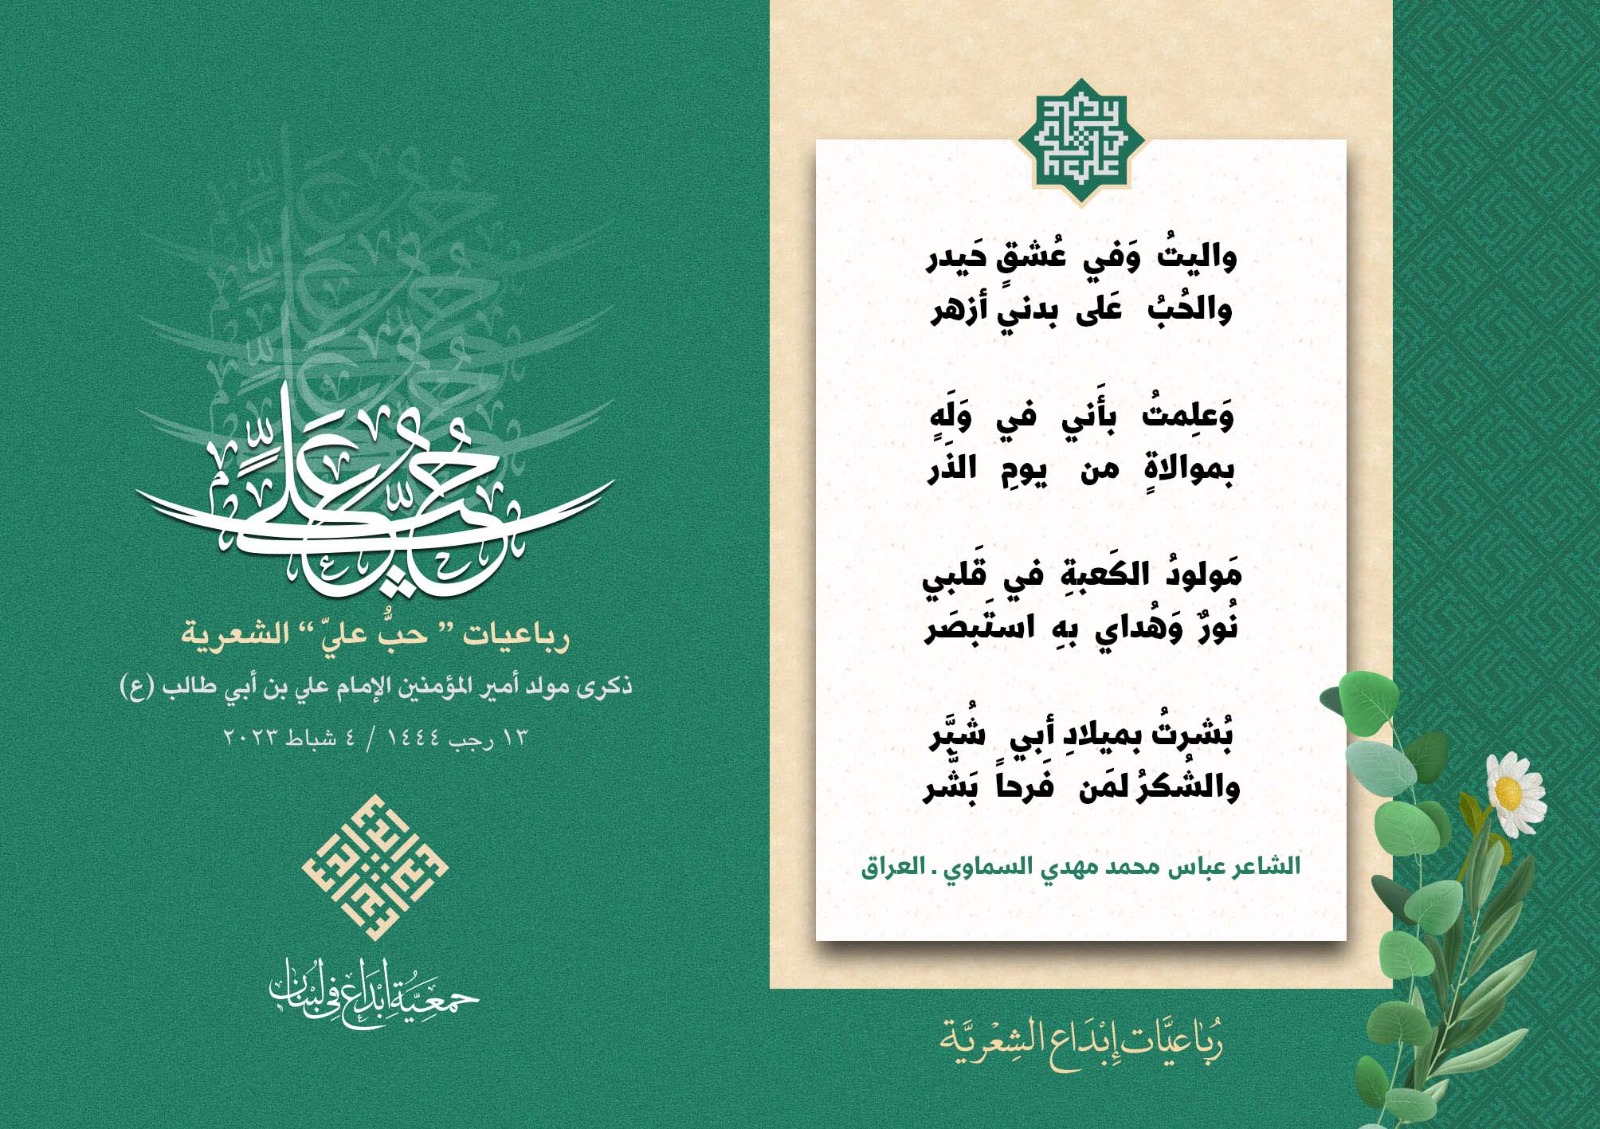 واليتُ وَفي عُشقٍ حَيدر
والحُبُ عَلى بدني أزهر
وَعلِمتُ بأَني في وَلَهٍ
بموالاةٍ من يومِ الذَر
مَولودُ الكَعبةِ في قَلبي
نُورٌ وَهُداي بهِ استَبصَر
بُشرتُ بميلادِ أبي شُبَّر
والشُكرُ لمَن فَرحاً بَشَّر
الشاعر عباس محمد مهدي السماوي . العراق
رُبَاعيَّات إِبْدَاع الشِعْريَّة
حُبُّ عَلِيٍّ
رباعيات ” حبُّ عليّ “ الشعرية
ذكرى مولد أمير المؤمنين الإمام علي بن أبي طالب (ع)
١٣ رجب ١٤٤٤ / ٤ شباط ٢٠٢٣
جمعيَّة إبْدَاع في لبْنَان